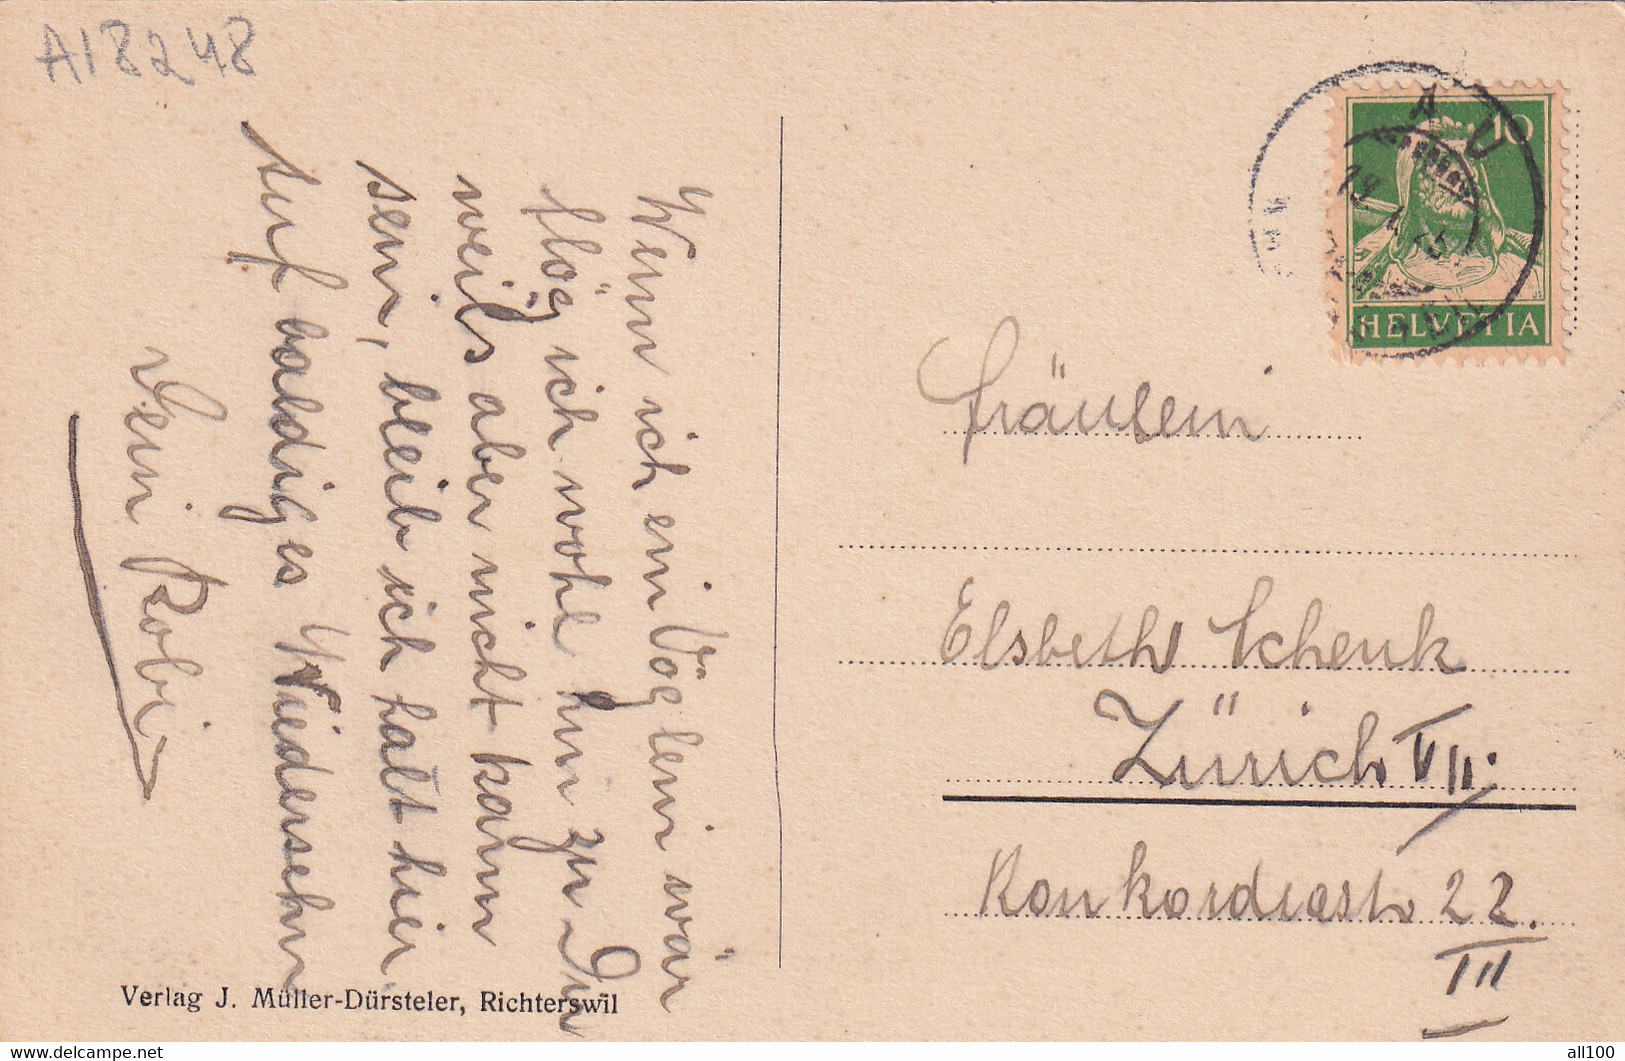 A18248
Wenn ich ein Vöglein wär
flög ich wohl hin zu Dir
weils aber nicht kann
sein, bleib ich halt hier
Auf baldiges Wiedersehn
Dein Robi
Verlag J. Müller-Dürsteler, Richterswil
AU
10
HELVETIA
Fräulein
Elsbeth Schenk
Zürich VII.
Konkordiastr 22.
III
delcampe.net
all100